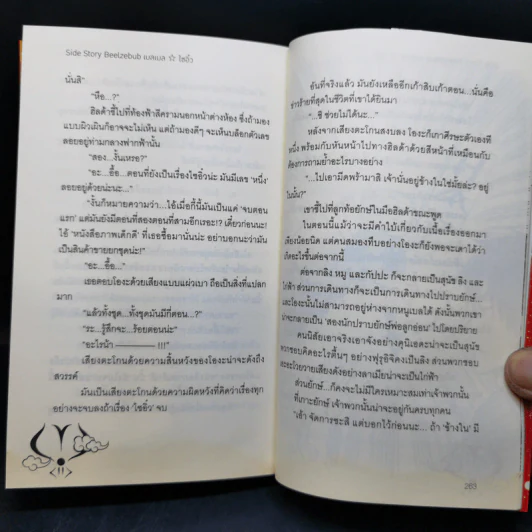 Side Story Beelzebub เบลเบส ☆ ไซอิ๋ว
นั่นสิ"
"หือ...?"
ฮิลด้าชี้ไปที่ท้องฟ้าสีครามนอกหน้าต่างห้อง ซึ่งถ้ามอง
แบบผิวเผินก็อาจจะไม่เห็น แต่ถ้ามองดีๆ จะเห็นบล็อกตัวเลข
ลอยอยู่ท่ามกลางฟากฟ้านั้น
"สอง...งั้นเหรอ?"
"อะ...อื้อ...ตอนที่ยังเป็นเรื่องไซอิ๋วน่ะ มันมีเลข 'หนึ่ง'
ลอยอยู่ด้วยน่ะนะ..."
"งั้นก็หมายความว่า...ไอ้เมื่อกี้นี้มันเป็นแค่ 'จบตอน
แรก' แต่มันยังมีตอนที่สองตอนที่สามอีกเรอะ!? เดี๋ยวก่อนนะ!
ไอ้ 'หนังสือภาพเด็กดี' ที่เธอซื้อมานั่นน่ะ อย่าบอกนะว่ามัน
เป็นสินค้าขายยกชุดน่ะ!"
"อะ...อื้อ..."
เธอตอบโองะด้วยเสียงแบบแผ่วเบา ถือเป็นสิ่งที่แปลก
มาก
"แล้วทั้งชุด...ทั้งชุดมันมีกี่ตอน...?"
"ระ...รู้สึกจะ...ร้อยตอนน่ะ"
"อะไรน้า ————— !!!"
เสียงตะโกนด้วยความสิ้นหวังของโองะน่าจะดังถึง
สวรรค์
มันเป็นเสียงตะโกนด้วยความผิดหวังที่คิดว่าเรื่องทุก
อย่างจะจบลงถ้าเรื่อง 'ไซอิ๋ว' จบ
อันที่จริงแล้ว มันยังเหลืออีกเก้าสิบเก้าตอน...นั่นคือ
ข่าวร้ายที่สุดในชีวิตที่เขาได้ยินมา
"...ชิ ช่วยไม่ได้นะ..."
หลังจากเสียงตะโกนสงบลง โองะก็เกาศีรษะตัวเองที
หนึ่ง พร้อมกับหันหน้าไปทางฮิลด้าด้วยสีหน้าที่เหมือนกับ
ต้องการถามย้ำอะไรบางอย่าง
"...ไปเอามีดพร้ามาสิ เจ้านั่นอยู่ข้างในใช่มั้ยล่ะ? อยู่
ในนั้น?"
เขาชี้ไปที่ลูกท้อยักษ์ในมือฮิลด้าขณะพูด
ในตอนนี้แม้ว่าจะมีคำใบ้เกี่ยวกับเนื้อเรื่องออกมา
เพียงน้อยนิด แต่คนสมองทึบอย่างโองะก็ยังพอจะเดาได้ว่า
เกิดอะไรขึ้นต่อจากนี้
ต่อจากลิง หมู และกัปปะ ก็จะกลายเป็นสุนัข ลิง และ
ไก่ฟ้า ส่วนการเดินทางก็จะเป็นการเดินทางไปปราบยักษ์...
และโอ​งะนั้นไม่สามารถอยู่ห่างจากหนูเบลได้ ดังนั้นพวกเขา
น่าจะกลายเป็น 'สองนักปราบยักษ์พ่อลูกอ่อน' ไปโดยปริยาย
คนนิสัยเอาจริงเอาจังอย่างคุนิเอดะน่าจะเป็นสุนัข
พวกชอบคิดอะไรตื้นๆ อย่างฟุรุอิจิคงเป็นลิง ส่วนพวกชอบ
โวยวายเสียงดังอย่างลาเมียน่าจะเป็นไก่ฟ้า
ส่วนยักษ์...ก็คงจะไม่มีใครเหมาะสมเท่าเจ้าพวกนั้น
ที่เกาะยักษ์ เจ้าพวกนั้นน่าจะอยู่กันครบทุกคน
"เฮ้า จัดการซะสิ แต่บอกไว้ก่อนนะ... ถ้า 'ข้างใน' มี
265